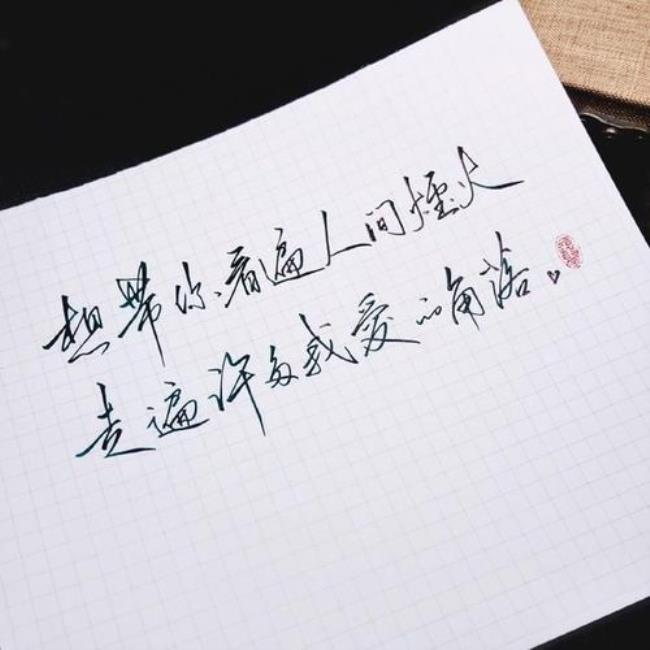 想带你看遍人间煙火
走遍许多我爱的角落。